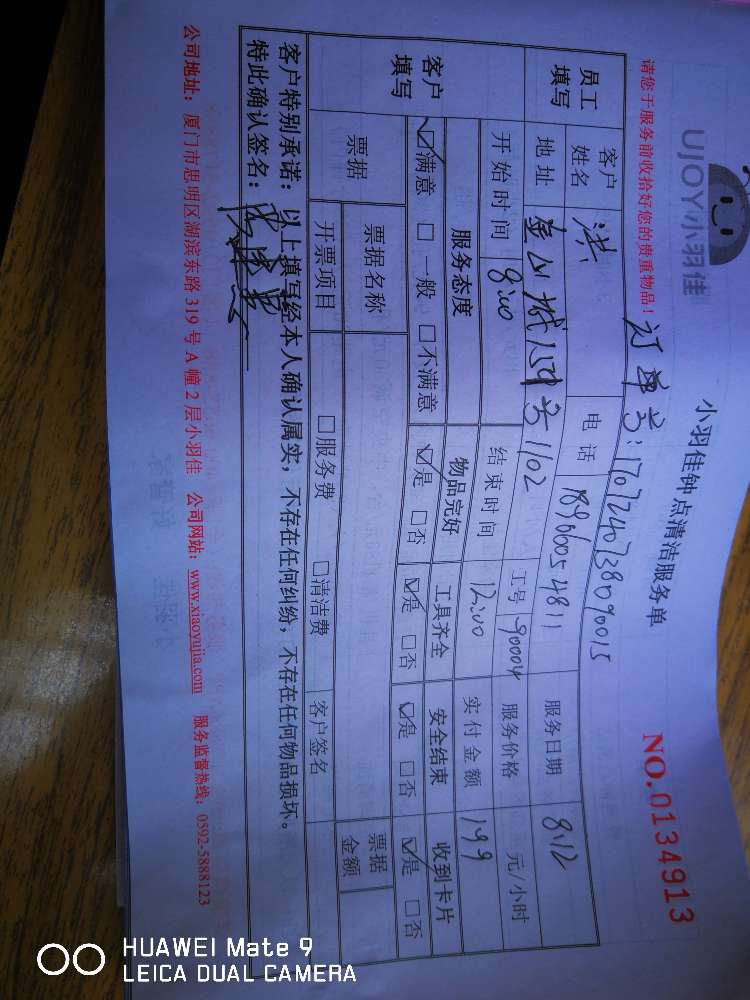 UJOY小羽佳
小羽佳钟点清洁服务单
NO.0134913
请您于服务前收拾好您的贵重物品!
订单号:1707240738090015
员工填写
客户姓名 洪 电话 18966054811 服务日期 8.12
地址 金山城 号1102 工号 90004 服务价格 元/小时
开始时间 8:00 结束时间 12:00 实付金额 199
客户填写
服务态度 物品完好 工具齐全 安全结束 收到卡片
☑满意 □一般 □不满意 ☑是 □否 ☑是 □否 ☑是 □否 ☑是 □否
票据 票据名称 票据金额
开票项目 □服务费 □清洁费 客户签名
客户特别承诺:以上填写经本人确认属实,不存在任何纠纷,不存在任何物品损坏。
特此确认签名:
公司地址:厦门市思明区湖滨东路319号A幢2层小羽佳 公司网站:www.xiaoyujia.com 服务监督热线:0592-5888123
HUAWEI Mate 9
LEICA DUAL CAMERA